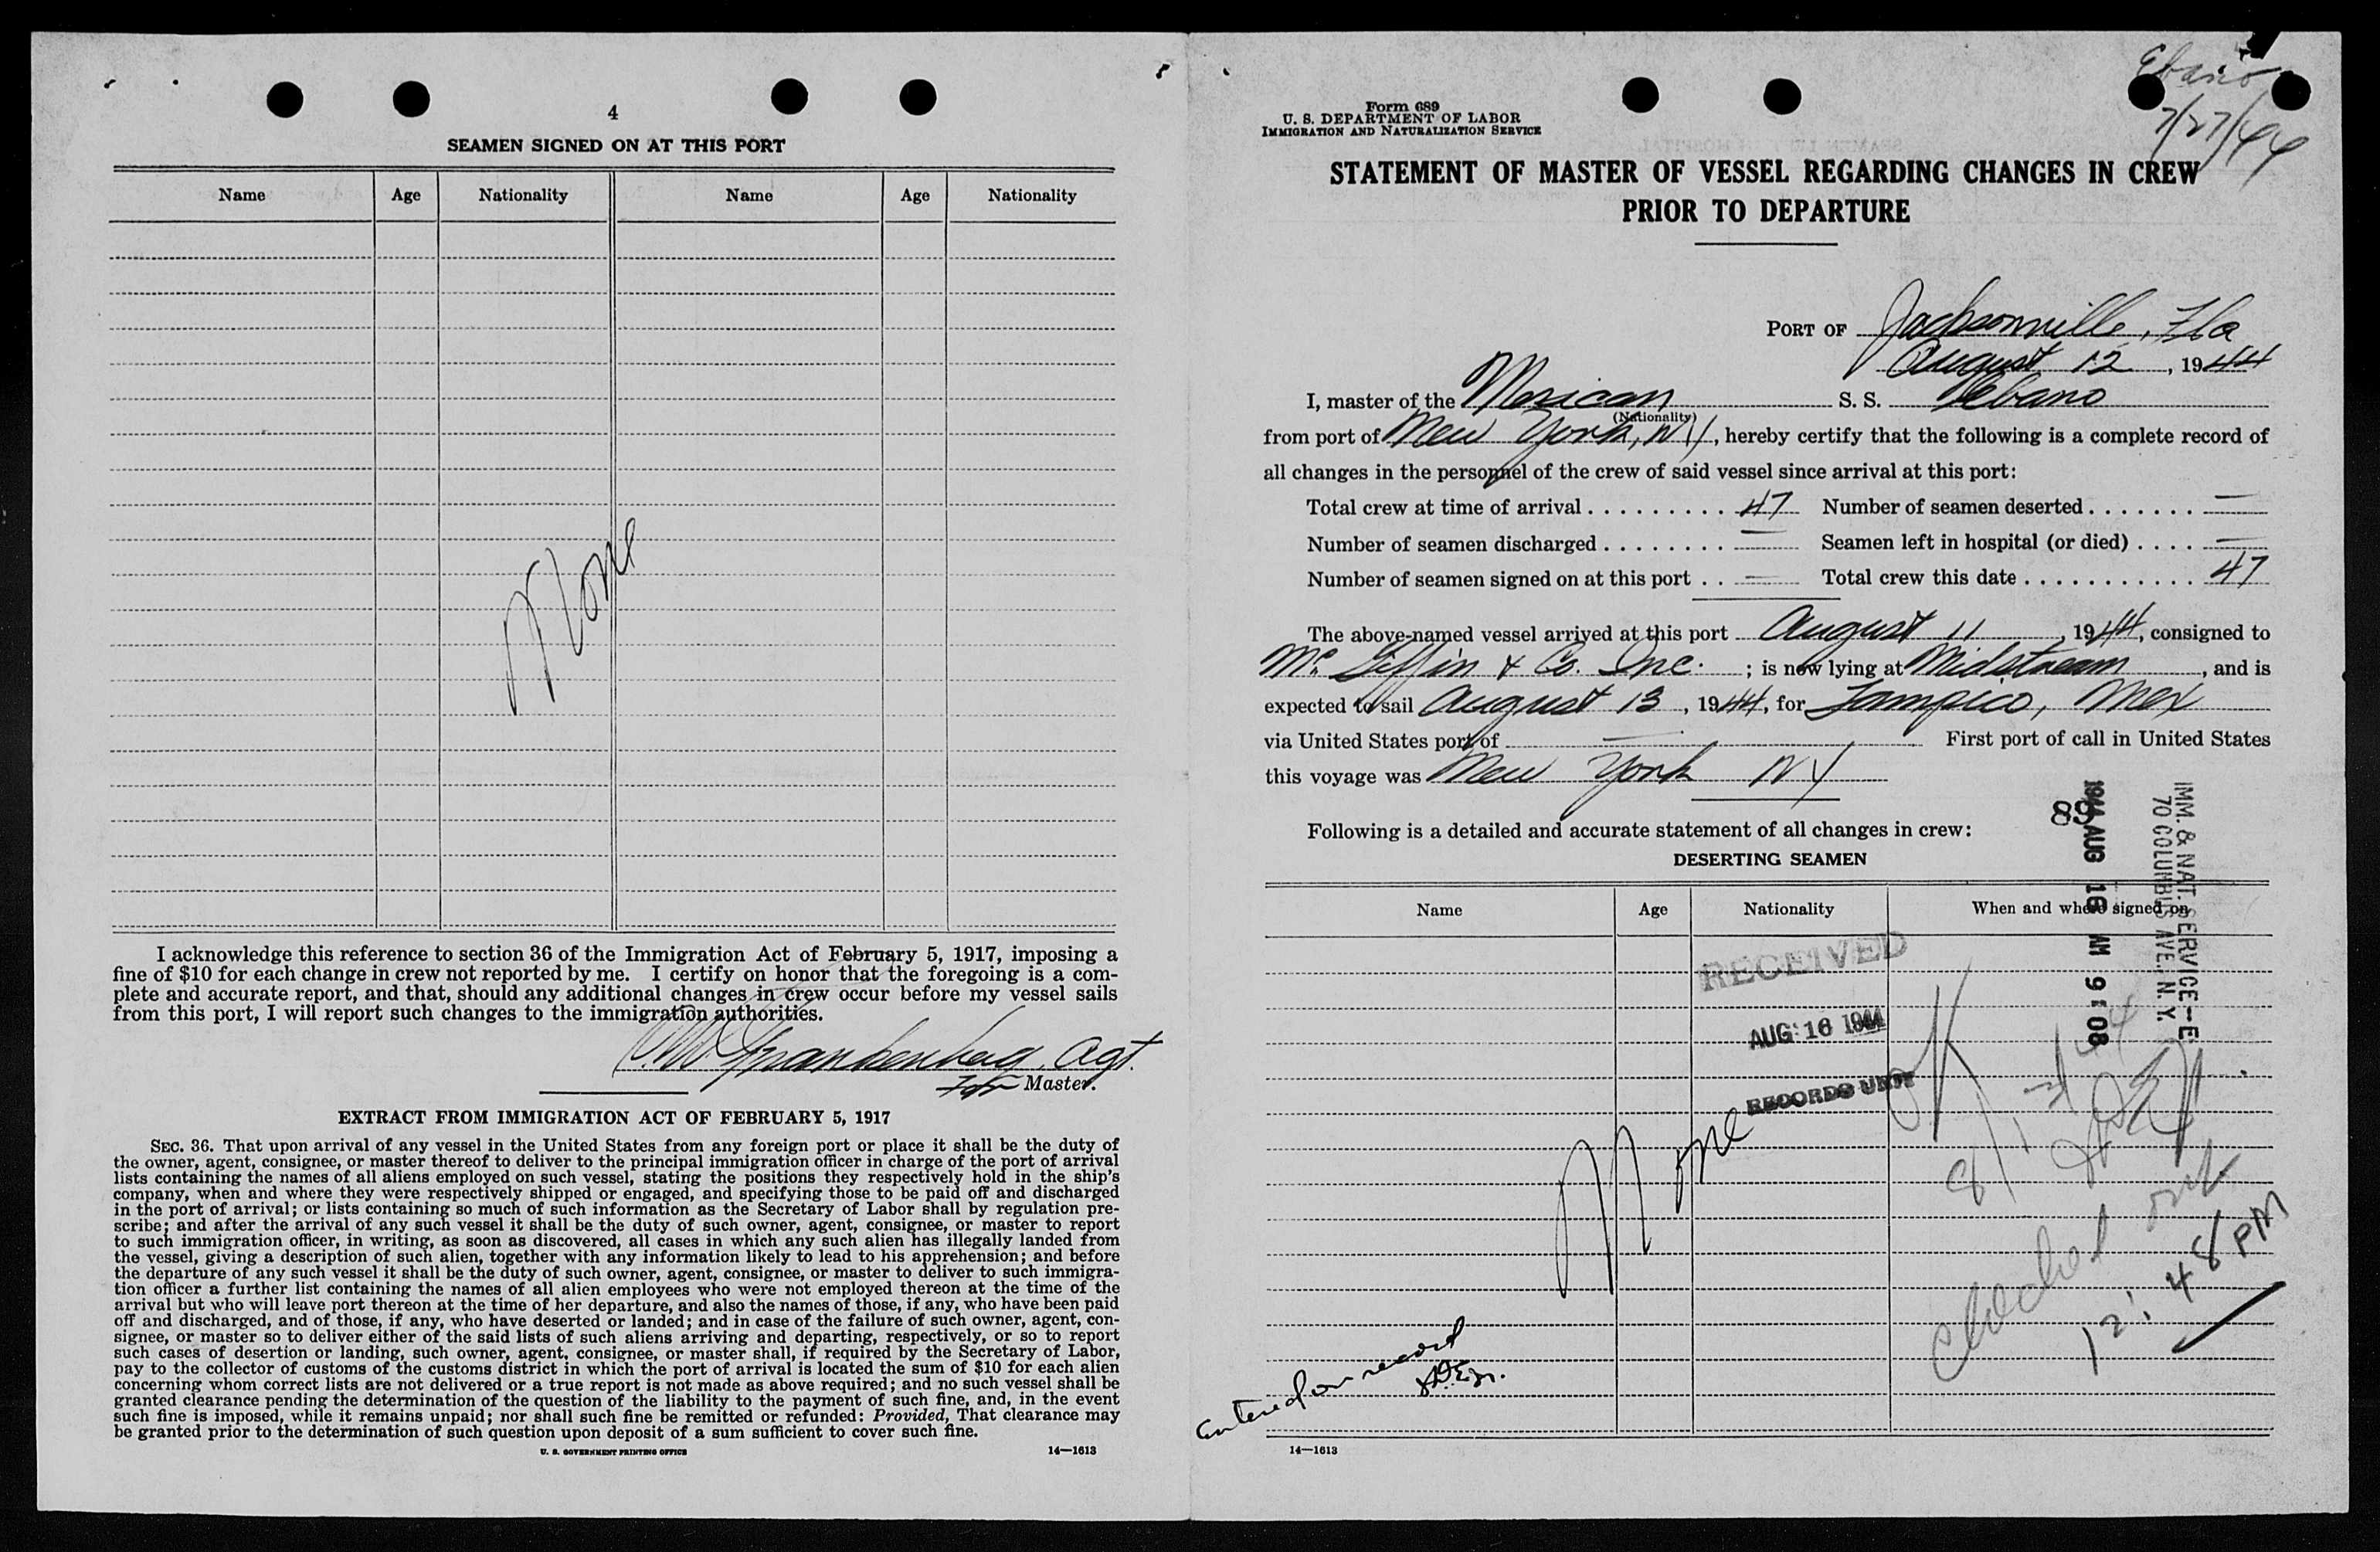 4
SEAMEN SIGNED ON AT THIS PORT
Name Age Nationality Name Age Nationality
None
I acknowledge this reference to section 36 of the Immigration Act of February 5, 1917, imposing a
fine of $10 for each change in crew not reported by me. I certify on honor that the foregoing is a com-
plete and accurate report, and that, should any additional changes in crew occur before my vessel sails
from this port, I will report such changes to the immigration authorities.
Agt.
For Master.
EXTRACT FROM IMMIGRATION ACT OF FEBRUARY 5, 1917
SEC. 36. That upon arrival of any vessel in the United States from any foreign port or place it shall be the duty of
the owner, agent, consignee, or master thereof to deliver to the principal immigration officer in charge of the port of arrival
lists containing the names of all aliens employed on such vessel, stating the positions they respectively hold in the ship's
company, when and where they were respectively shipped or engaged, and specifying those to be paid off and discharged
in the port of arrival; or lists containing so much of such information as the Secretary of Labor shall by regulation pre-
scribe; and after the arrival of any such vessel it shall be the duty of such owner, agent, consignee, or master to report
to such immigration officer, in writing, as soon as discovered, all cases in which any such alien has illegally landed from
the vessel, giving a description of such alien, together with any information likely to lead to his apprehension; and before
the departure of any such vessel it shall be the duty of such owner, agent, consignee, or master to deliver to such immigra-
tion officer a further list containing the names of all alien employees who were not employed thereon at the time of the
arrival but who will leave port thereon at the time of her departure, and also the names of those, if any, who have been paid
off and discharged, and of those, if any, who have deserted or landed; and in case of the failure of such owner, agent, con-
signee, or master so to deliver either of the said lists of such aliens arriving and departing, respectively, or so to report
such cases of desertion or landing, such owner, agent, consignee, or master shall, if required by the Secretary of Labor,
pay to the collector of customs of the customs district in which the port of arrival is located the sum of $10 for each alien
concerning whom correct lists are not delivered or a true report is not made as above required; and no such vessel shall be
granted clearance pending the determination of the question of the liability to the payment of such fine, and, in the event
such fine is imposed, while it remains unpaid; nor shall such fine be remitted or refunded: Provided, That clearance may
be granted prior to the determination of such question upon deposit of a sum sufficient to cover such fine.
U. S. GOVERNMENT PRINTING OFFICE 14—1613
Ebano
7/27/44
Form 689
U. S. DEPARTMENT OF LABOR
IMMIGRATION AND NATURALIZATION SERVICE
STATEMENT OF MASTER OF VESSEL REGARDING CHANGES IN CREW
PRIOR TO DEPARTURE
PORT OF Jacksonville, Fla
August 12, 1944
I, master of the Mexican S. S. Ebano
(Nationality)
from port of New York, NY, hereby certify that the following is a complete record of
all changes in the personnel of the crew of said vessel since arrival at this port:
Total crew at time of arrival . . . . . . . . . 47 Number of seamen deserted . . . . . . . —
Number of seamen discharged . . . . . . . . — Seamen left in hospital (or died) . . . . —
Number of seamen signed on at this port . . — Total crew this date . . . . . . . . . . . . 47
The above-named vessel arrived at this port August 11, 1944, consigned to
Mc Giffin & Co. Inc. ; is now lying at Midstream, and is
expected to sail August 13, 1944, for Tampico, Mex
via United States port of — First port of call in United States
this voyage was New York NY
89
Following is a detailed and accurate statement of all changes in crew:
DESERTING SEAMEN
Name Age Nationality When and where signed on
IMM. & NAT. SERVICE-E
70 COLUMBUS AVE., N. Y.
1944 AUG 16 AM 9:08
RECEIVED
AUG 16 1944
RECORDS UNIT
OK
None
Checked out
12:48 PM
Entered on record
14—1613